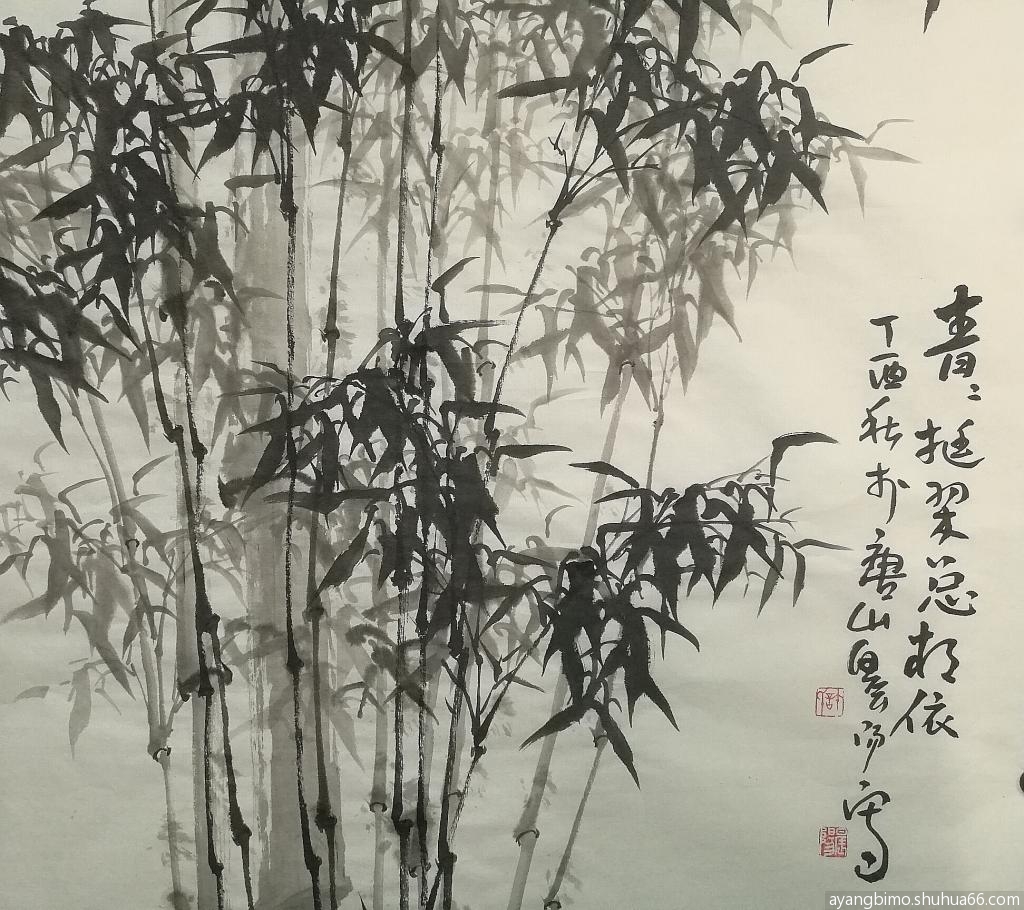 青〻挺翠总相依
丁酉秋于唐山阳写
ayangbimo.shuhua66.com